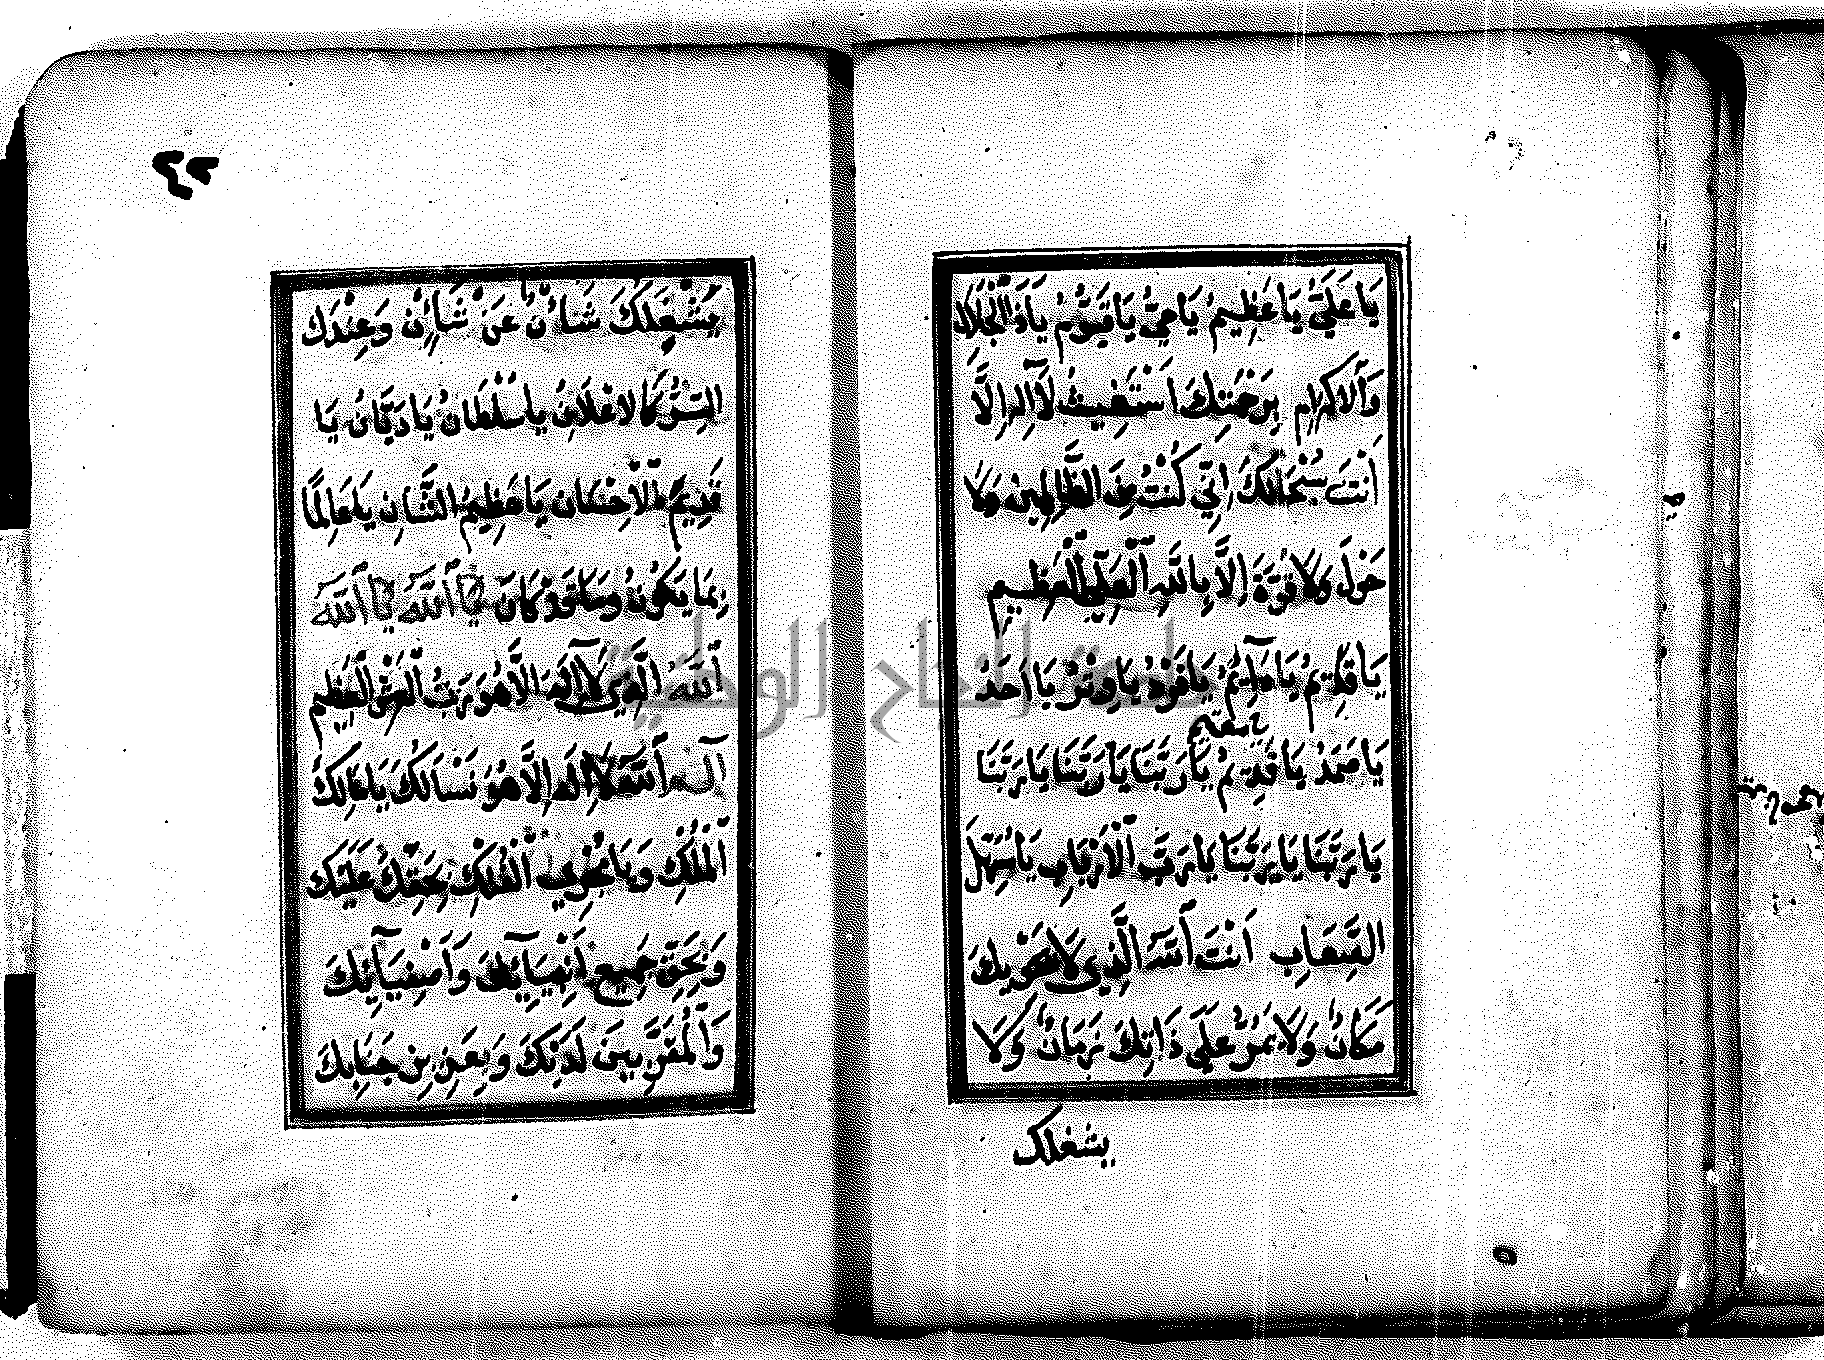 يَا عَلِيُّ يَا عَظِيمُ يَا حَيُّ يَا قَيُّومُ يَا ذَا الْجَلَالِ
وَالْاِكْرَامِ بِرَحْمَتِكَ اَسْتَغِيثُ لَا اِلٰهَ اِلَّا
اَنْتَ سُبْحَانَكَ اِنِّي كُنْتُ مِنَ الظَّالِمِينَ وَلَا
حَوْلَ وَلَا قُوَّةَ اِلَّا بِاللّٰهِ الْعَلِيِّ الْعَظِيمِ
يَا قَدِيمُ يَا دَآئِمُ يَا فَرْدُ يَا وِتْرُ يَا اَحَدُ
يَا صَمَدُ يَا قَدِيمُ يَا رَبَّنَا يَا رَبَّنَا يَا رَبَّنَا
يَا رَبَّنَا يَا رَبَّنَا يَا رَبَّ الْاَرْبَابِ يَا مُسَهِّلَ
الصِّعَابِ اَنْتَ اللّٰهُ الَّذِي لَا يَحْوِيكَ
مَكَانٌ وَلَا يَمُرُّ عَلَى ذَاتِكَ زَمَانٌ وَلَا
يشغلك
٤٢
يَشْغَلُكَ شَأْنٌ عَنْ شَأْنٍ وَعِنْدَكَ
السِّرُّ كَالْاِعْلَانِ يَا سُلْطَانُ يَا دَيَّانُ يَا
قَدِيمَ الْاِحْسَانِ يَا عَظِيمَ الشَّانِ يَا عَالِمًا
بِمَا يَكُونُ وَمَا قَدْ كَانَ يَا اَللّٰهُ يَا اَللّٰهُ
اَللّٰهُ الَّذِي لَا اِلٰهَ اِلَّا هُوَ رَبُّ الْعَرْشِ الْعَظِيمِ
اَللّٰهُ لَا اِلٰهَ اِلَّا هُوَ نَسْاَلُكَ يَا مَالِكَ
الْمُلْكِ وَيَا مُجْرِيَ الْفُلْكِ بِحَقِّكَ عَلَيْكَ
وَبِحَقِّ جَمِيعِ اَنْبِيَآئِكَ وَاَصْفِيَآئِكَ
وَالْمُقَرَّبِينَ لَدَيْكَ وَبِعَيْنٍ مِنْ جَنَابِكَ